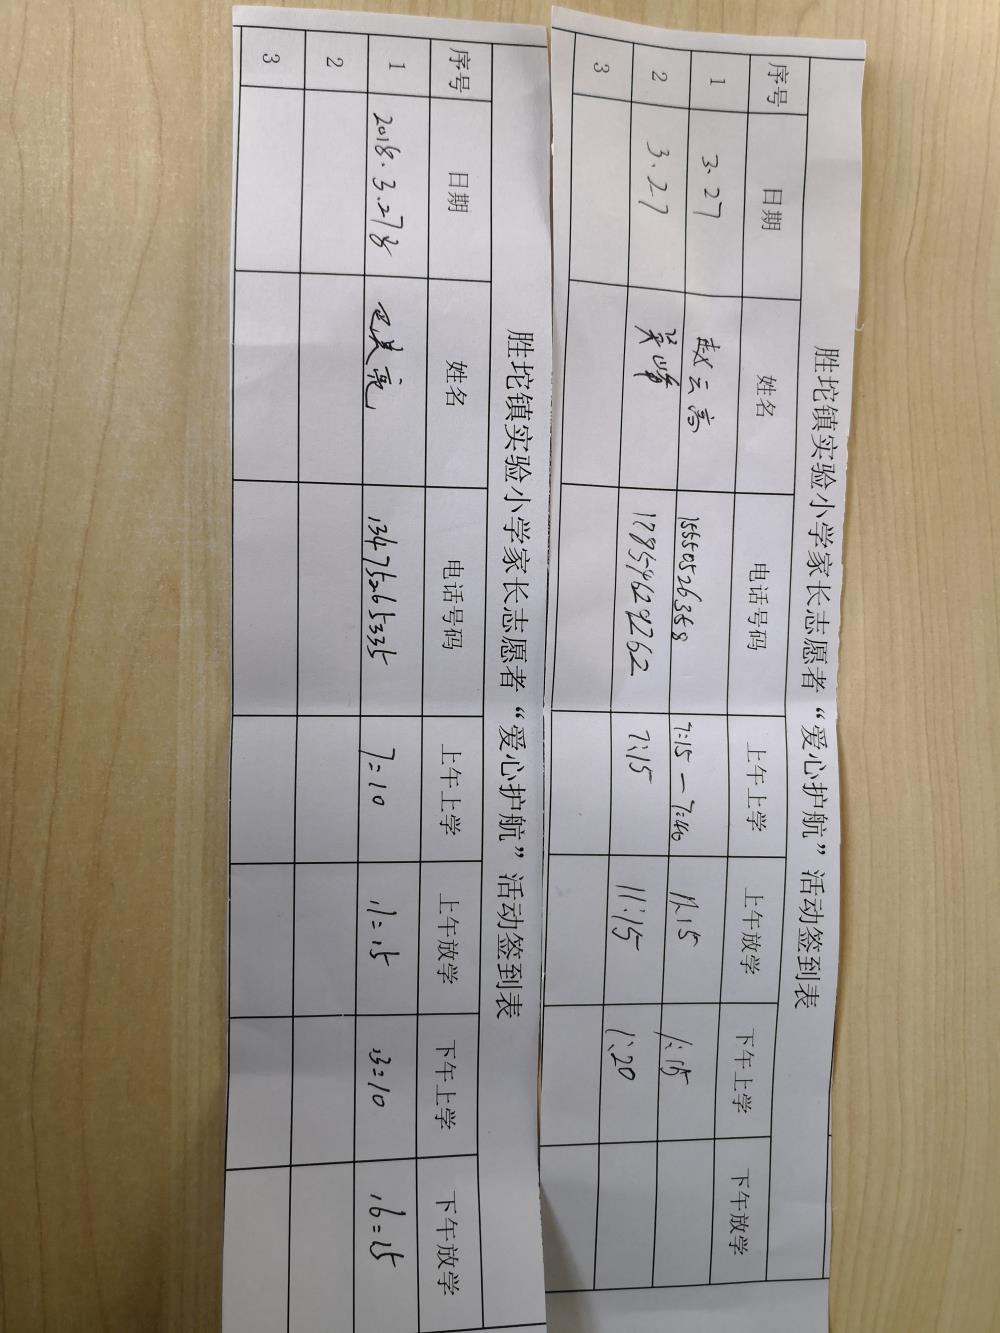 胜坨镇实验小学家长志愿者“爱心护航”活动签到表
序号 日期 姓名 电话号码 上午上学 上午放学 下午上学 下午放学
1 3.27 赵云高 15550526358 7:15—7:40 11:15 1:15
2 3.27 吴峰 17854629262 7:15 11:15 1:20
3
胜坨镇实验小学家长志愿者“爱心护航”活动签到表
序号 日期 姓名 电话号码 上午上学 上午放学 下午上学 下午放学
1 2018.3.27 13475265335 7:10 11:15 13:10 16:15
2
3